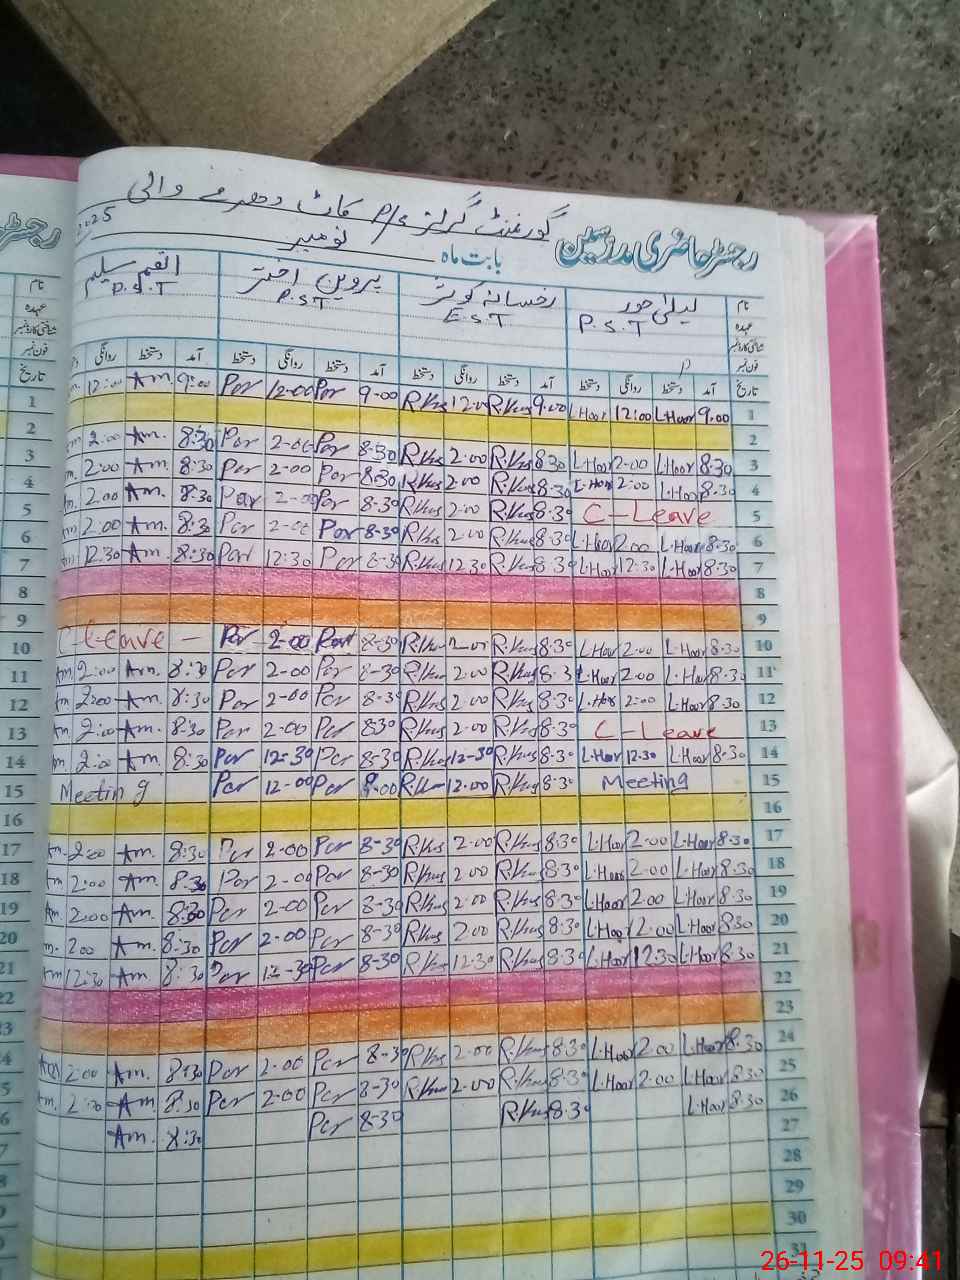 گورنمنٹ گرلز P/S کاٹ دھرمے والی
رجسٹر حاضری مدرسین
بابت ماہ نومبر
نام لیلیٰ حور رخسانہ کوثر پروین اختر انعم سلیم
عہدہ P.S.T E.S.T P.S.T P.S.T
شناختی کارڈ نمبر
فون نمبر
تاریخ آمد دستخط روانگی دستخط آمد دستخط روانگی دستخط آمد دستخط روانگی دستخط آمد دستخط روانگی
1 12:00 Am. 9:00 Par 12-00 Par 9-00 R.Kus 12.00 R.Kus 9.00 L.Hoor 12:00 L.Hoor 9.00 1
2 2
3 2:00 Am. 8:30 Par 2-00 Par 8-30 R.Kus 2.00 R.Kus 8.30 L.Hoor 2-00 L.Hoor 8.30 3
4 2:00 Am. 8:30 Par 2-00 Par 8-30 R.Kus 2.00 R.Kus 8.30 L.Hoor 2:00 L.Hoor 8.30 4
5 2.00 Am. 8.30 Par 2-00 Par 8-30 R.Kus 2.00 R.Kus 8.30 C-Leave 5
6 2.00 Am. 8:30 Par 2-00 Par 8-30 R.Kus 2.00 R.Kus 8.30 L.Hoor 2.00 L.Hoor 8.30 6
7 12.30 Am. 8:30 Par 12:30 Par 8-30 R.Kus 12.30 R.Kus 8.30 L.Hoor 12.30 L.Hoor 8.30 7
8 8
9 9
10 C-Leave - Par 2-00 Par 8-30 R.Kus 2.00 R.Kus 8.30 L.Hoor 2:00 L.Hoor 8.30 10
11 Am 2:00 Am. 8:30 Par 2-00 Par 8-30 R.Kus 2.00 R.Kus 8.3 L.Hoor 2.00 L.Hoor 8.30 11
12 2:00 Am. 8:30 Par 2-00 Par 8-30 R.Kus 2.00 R.Kus 8.30 L.Hoor 2:00 L.Hoor 8.30 12
13 2:00 Am. 8:30 Par 2-00 Par 8-30 R.Kus 2.00 R.Kus 8.30 C-Leave 13
14 2:00 Am. 8:30 Par 12-30 Par 8-30 R.Kus 12-30 R.Kus 8.30 L.Hoor 12.30 L.Hoor 8.30 14
15 Meeting Par 12-00 Par 8.00 R.Kus 12.00 R.Kus 8.30 Meeting 15
16 16
17 2:00 Am. 8:30 Par 2.00 Par 8-30 R.Kus 2.00 R.Kus 8.30 L.Hoor 2.00 L.Hoor 8.30 17
18 Am 2:00 Am. 8.30 Par 2-00 Par 8-30 R.Kus 2.00 R.Kus 8.30 L.Hoor 2.00 L.Hoor 8.30 18
19 Am 2:00 Am. 8:30 Par 2-00 Par 8-30 R.Kus 2.00 R.Kus 8.30 L.Hoor 2.00 L.Hoor 8.30 19
20 2.00 Am. 8:30 Par 2-00 Par 8-30 R.Kus 2.00 R.Kus 8.30 L.Hoor 2.00 L.Hoor 8.30 20
21 Am 12:30 Am 8:30 Par 12-30 Par 8-30 R.Kus 12.30 R.Kus 8.30 L.Hoor 12.30 L.Hoor 8.30 21
22 22
23 23
2.00 Am. 8:30 Par 2.00 Par 8-30 R.Kus 2.00 R.Kus 8.30 L.Hoor 2.00 L.Hoor 8.30 24
Am. 8:30 Par 2.00 Par 8-30 R.Kus 2.00 R.Kus 8.30 L.Hoor 2.00 L.Hoor 8.30 25
Am. 8:30 Par 8-30 R.Kus 8.30 L.Hoor 8.30 26
27
28
29
30
31
26-11-25 09:41